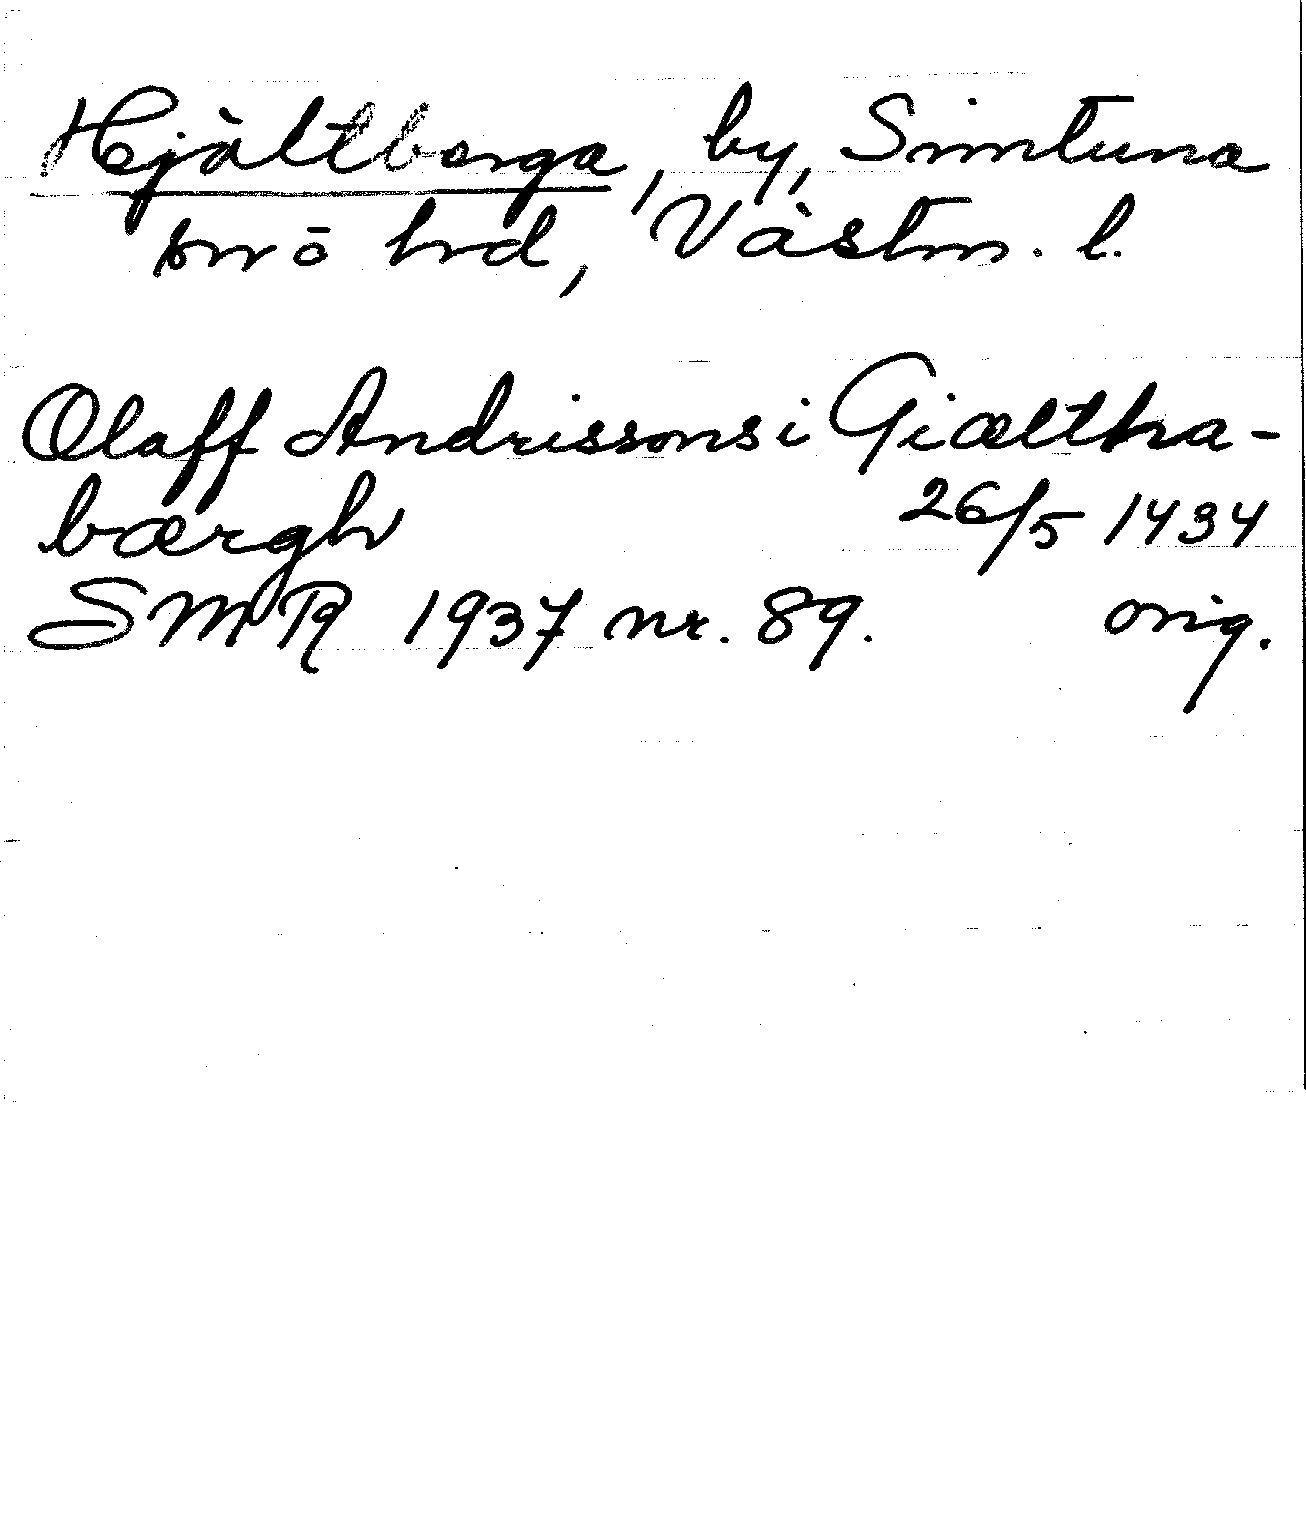 Hjältberga, by, Simtuna
sn o hd, Västm. l.
Olaff Andrissons i Giæltha-
bærgh 26/5 1434
SMR 1937 nr. 89. orig.